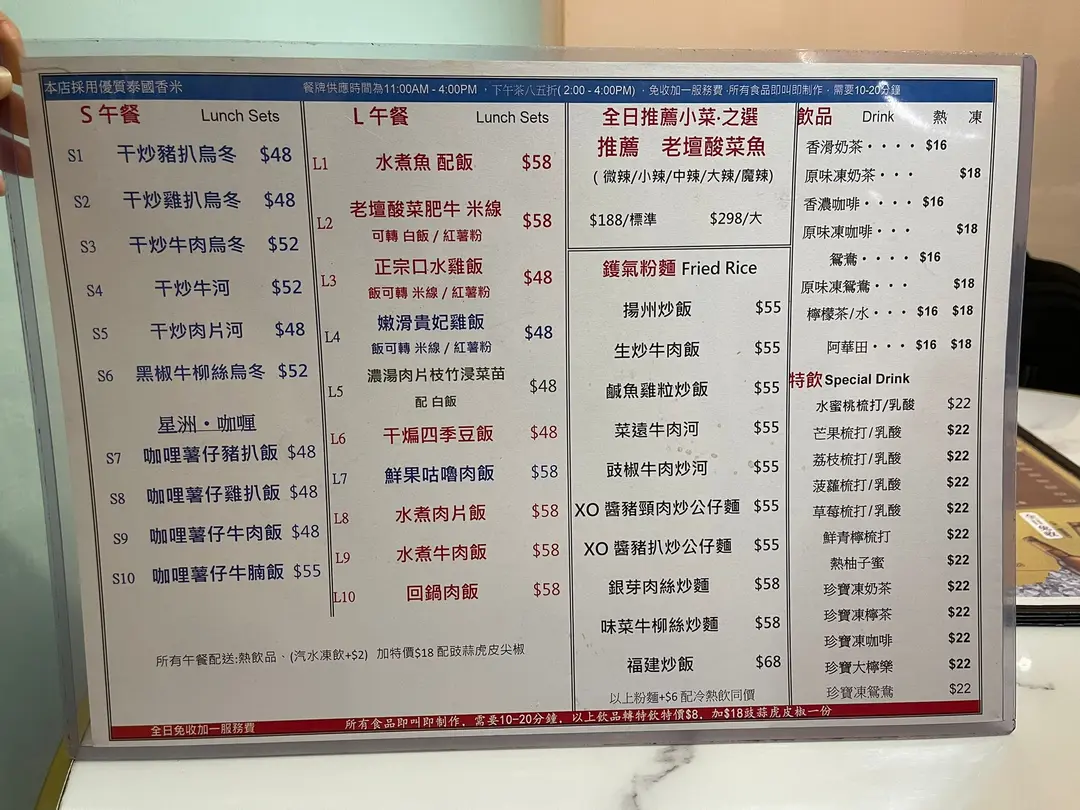 本店採用優質泰國香米
餐牌供應時間為11:00AM - 4:00PM ，下午茶八五折( 2:00 - 4:00PM) ，免收加一服務費 ‧所有食品即叫即制作，需要10-20分鐘
S 午餐 Lunch Sets
S1 干炒豬扒烏冬 $48
S2 干炒雞扒烏冬 $48
S3 干炒牛肉烏冬 $52
S4 干炒牛河 $52
S5 干炒肉片河 $48
S6 黑椒牛柳絲烏冬 $52
星洲・咖喱
S7 咖哩薯仔豬扒飯 $48
S8 咖哩薯仔雞扒飯 $48
S9 咖哩薯仔牛肉飯 $48
S10 咖哩薯仔牛腩飯 $55
L 午餐 Lunch Sets
L1 水煮魚 配飯 $58
L2 老壇酸菜肥牛 米線 $58
可轉 白飯 / 紅薯粉
L3 正宗口水雞飯 $48
飯可轉 米線 / 紅薯粉
L4 嫩滑貴妃雞飯 $48
飯可轉 米線 / 紅薯粉
L5 濃湯肉片枝竹浸菜苗 $48
配 白飯
L6 干煸四季豆飯 $48
L7 鮮果咕嚕肉飯 $58
L8 水煮肉片飯 $58
L9 水煮牛肉飯 $58
L10 回鍋肉飯 $58
所有午餐配送:熱飲品、(汽水凍飲+$2) 加特價$18 配豉蒜虎皮尖椒
全日推薦小菜‧之選
推薦 老壇酸菜魚
( 微辣/小辣/中辣/大辣/魔辣)
$188/標準 $298/大
鑊氣粉麵 Fried Rice
揚州炒飯 $55
生炒牛肉飯 $55
鹹魚雞粒炒飯 $55
菜遠牛肉河 $55
豉椒牛肉炒河 $55
XO 醬豬頸肉炒公仔麵 $55
XO 醬豬扒炒公仔麵 $55
銀芽肉絲炒麵 $58
味菜牛柳絲炒麵 $58
福建炒飯 $68
以上粉麵+$6 配冷熱飲同價
飲品 Drink 熱 凍
香滑奶茶・・・・ $16
原味凍奶茶・・・ $18
香濃咖啡・・・・ $16
原味凍咖啡・・・ $18
鴛鴦・・・・ $16
原味凍鴛鴦・・・ $18
檸檬茶/水・・・ $16 $18
阿華田・・・ $16 $18
特飲 Special Drink
水蜜桃梳打/乳酸 $22
芒果梳打/乳酸 $22
荔枝梳打/乳酸 $22
菠蘿梳打/乳酸 $22
草莓梳打/乳酸 $22
鮮青檸梳打 $22
熱柚子蜜 $22
珍寶凍奶茶 $22
珍寶凍檸茶 $22
珍寶凍咖啡 $22
珍寶大檸樂 $22
珍寶凍鴛鴦 $22
全日免收加一服務費
所有食品即叫即制作，需要10-20分鐘，以上飲品轉特飲特價$8，加$18豉蒜虎皮椒一份